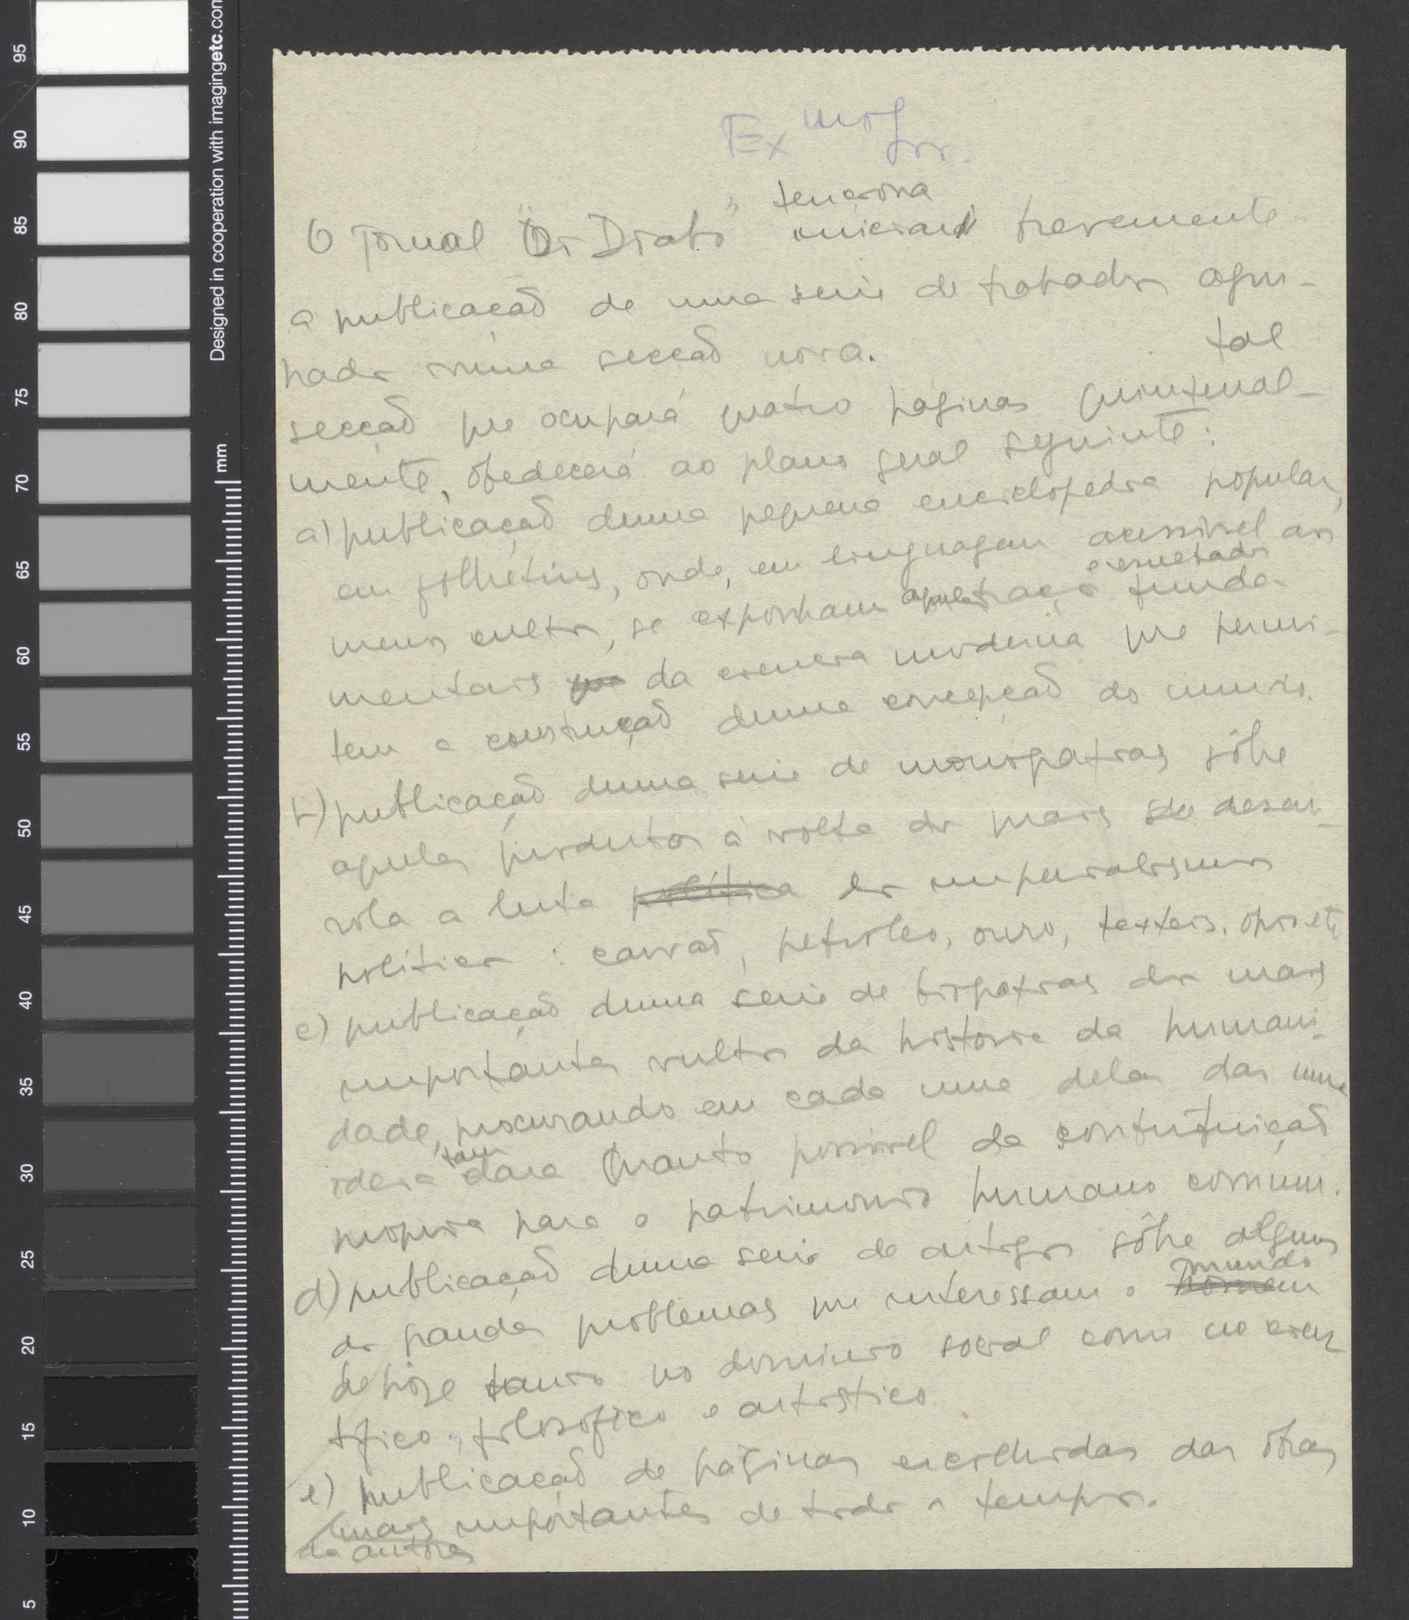 95
90
85
80
75
70
65
60
55
50
45
40
35
30
25
20
15
10
5
Designed in cooperation with imagingetc.com
mm
Exmo Snr.
tenciona
O jornal "O Diabo" iniciará brevemente
a publicação de uma serie de trabalhos agru-
pados numa secção nova. tal
secção que ocupará quatro páginas quinzenal-
mente, obedecerá ao plano geral seguinte:
a) publicação duma pequena enciclopédia popular,
em folhetins, onde, em linguagem acessivel aos
resultados
menos cultos, se exponham aqueles funda-
mentais da ciencia moderna que permi-
tem a construção duma concepção do mundo.
b) publicação duma serie de monografias sôbre
aqueles produtos à volta dos quais se desen-
rola a luta política dos imperialismos
politicos: carvão, petroleo, ouro, texteis, opio etc,
c) publicação duma serie de biografias dos mais
importantes vultos da historia da humani-
dade, procurando em cada uma delas dar uma
ideia tam clara quanto possivel da contribuição
propria para o patrimonio humano comum.
d) publicação duma serie de artigos sôbre alguns
mundo
dos grandes problemas que interessam o homem
de hoje tanto no dominio social como no cien
tifico, filosofico e artistico.
e) publicação de páginas escolhidas das obras
mais importantes de todos os tempos.
de autores